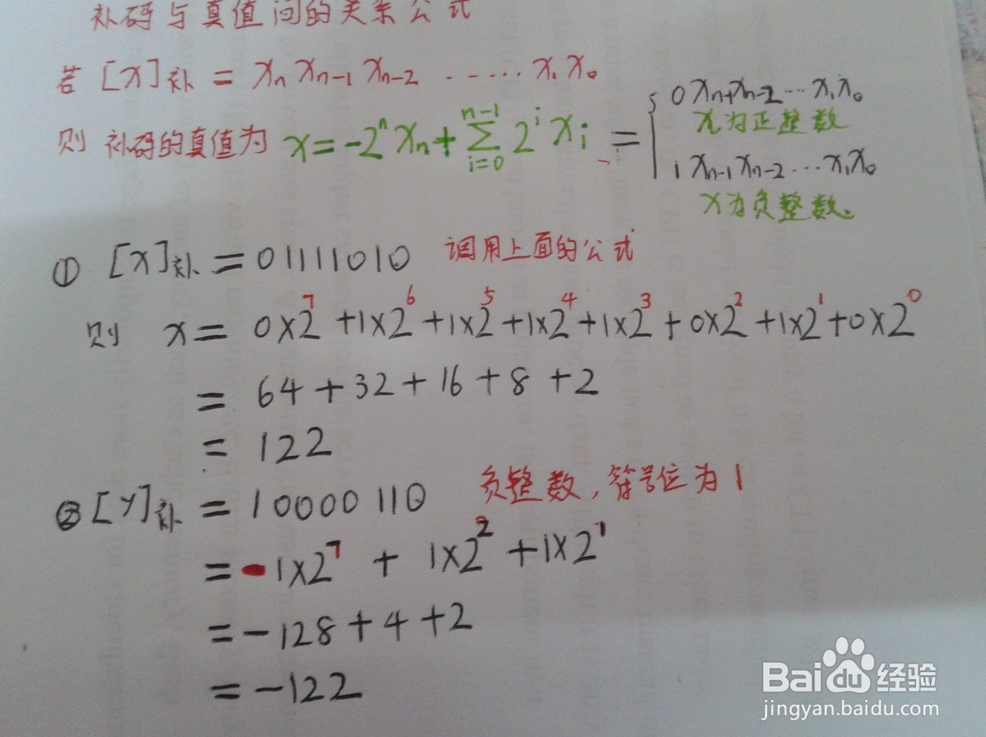 补码与真值间的关系公式
若 [x]补 = xn xn-1 xn-2 ······ x1 x0
则 补码的真值为 x = -2^n xn + ∑_{i=0}^{n-1} 2^i xi = { 0 xn-1 xn-2 ··· x1 x0
x为正整数
1 xn-1 xn-2 ··· x1 x0
x为负整数.
① [x]补 = 01111010 调用上面的公式
则 x = 0×2^7 + 1×2^6 + 1×2^5 + 1×2^4 + 1×2^3 + 0×2^2 + 1×2^1 + 0×2^0
= 64 + 32 + 16 + 8 + 2
= 122
② [y]补 = 10000110 负整数, 符号位为1
= -1×2^7 + 1×2^2 + 1×2^1
= -128 + 4 + 2
= -122
Baidu经验
jingyan.baidu.com